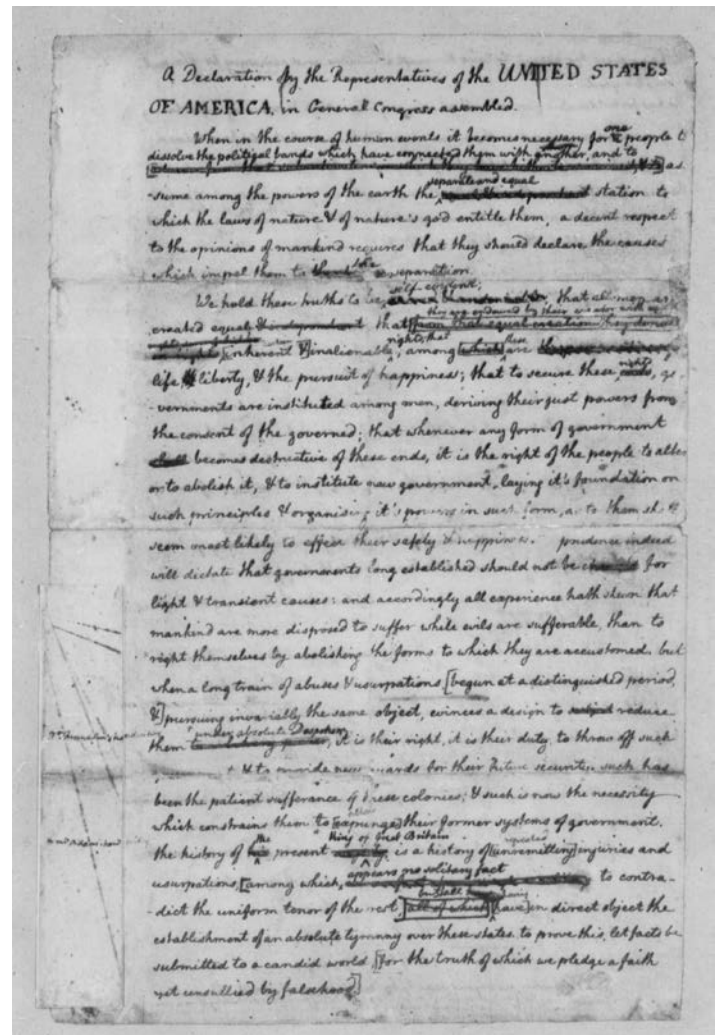 A Declaration by the Representatives of the UNITED STATES
OF AMERICA, in General Congress assembled.
When in the course of human events it becomes necessary for one people to
dissolve the political bands which have connected them with another, and to
as
separate and equal
-sume among the powers of the earth the station to
which the laws of nature & of nature's god entitle them, a decent respect
to the opinions of mankind requires that they should declare the causes
which impel them to the separation.
self-evident;
We hold these truths to be, that all men are
they are endowed by their creator with
created equal & independant that from that equal creation they derive
rights; that these
inherent & inalienable, among which are
life, & liberty, & the pursuit of happiness; that to secure these rights, go
-vernments are instituted among men, deriving their just powers from
the consent of the governed; that whenever any form of government
shall becomes destructive of these ends, it is the right of the people to alter
or to abolish it, & to institute new government, laying it's foundation on
such principles & organising it's powers in such form, as to them sh
seem most likely to effect their safety & happiness. prudence indeed
will dictate that governments long established should not be for
light & transient causes: and accordingly all experience hath shewn that
mankind are more disposed to suffer while evils are sufferable, than to
right themselves by abolishing the forms to which they are accustomed. but
when a long train of abuses & usurpations [begun at a distinguished period,
&] pursuing invariably the same object, evinces a design to reduce
under absolute Despotism
them, it is their right, it is their duty, to throw off such
& to provide new guards for their future security. such has
been the patient sufferance of these colonies; & such is now the necessity
which constrains them to [expunge] their former systems of government.
the King of Great Britain repeated
the history of present is a history of [unremitting] injuries and
appears no solitary fact
usurpations, [among which, to contra-
but all
-dict the uniform tenor of the rest, [all of which] [have] in direct object the
establishment of an absolute tyranny over these states. to prove this, let facts be
submitted to a candid world, [for the truth of which we pledge a faith
yet unsullied by falsehood.]